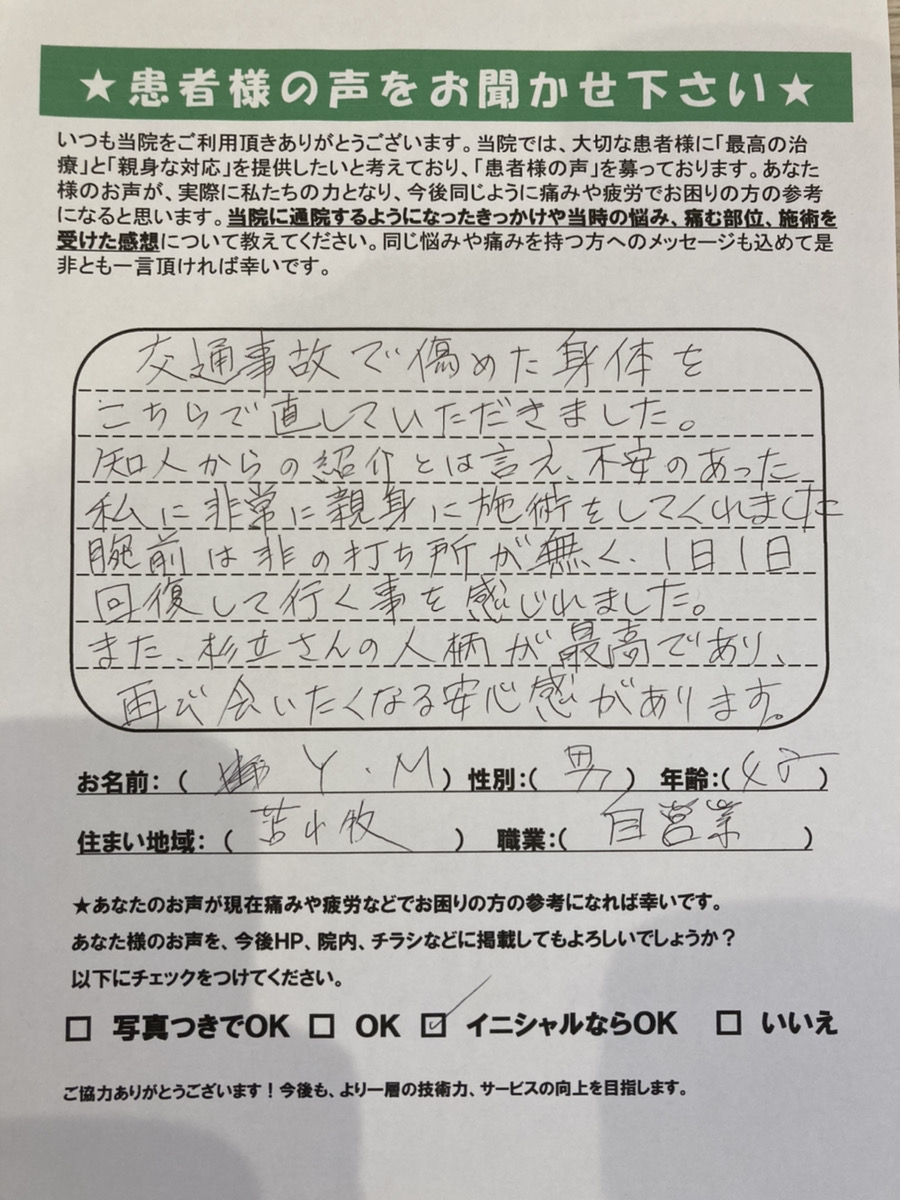 ★患者様の声をお聞かせ下さい★
いつも当院をご利用頂きありがとうございます。当院では、大切な患者様に「最高の治
療」と「親身な対応」を提供したいと考えており、「患者様の声」を募っております。あなた
様のお声が、実際に私たちの力となり、今後同じように痛みや疲労でお困りの方の参考
になると思います。当院に通院するようになったきっかけや当時の悩み、痛む部位、施術を
受けた感想について教えてください。同じ悩みや痛みを持つ方へのメッセージも込めて是
非とも一言頂ければ幸いです。
交通事故で傷めた身体を
こちらで直していただきました。
知人からの紹介とは言え、不安のあった
私に非常に親身に施術をしてくれました
腕前は非の打ち所が無く、1日1日
回復して行く事を感じれました。
また、杉立さんの人柄が最高であり、
再び会いたくなる安心感があります。
お名前：（ Y．M ）性別：（ 男 ）年齢：（ ）
住まい地域：（ 苫小牧 ）職業：（ 自営業 ）
★あなたのお声が現在痛みや疲労などでお困りの方の参考になれば幸いです。
あなた様のお声を、今後HP、院内、チラシなどに掲載してもよろしいでしょうか？
以下にチェックをつけてください。
□ 写真つきでOK □ OK ☑ イニシャルならOK □ いいえ
ご協力ありがとうございます！今後も、より一層の技術力、サービスの向上を目指します。